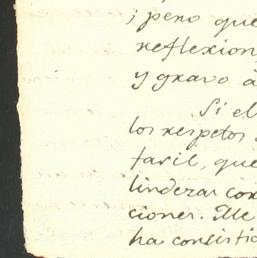 ; pero que
reflexion
y gravo á
Si el
los respetos
facil, que
linderar con
ciones. Me
ha consisti